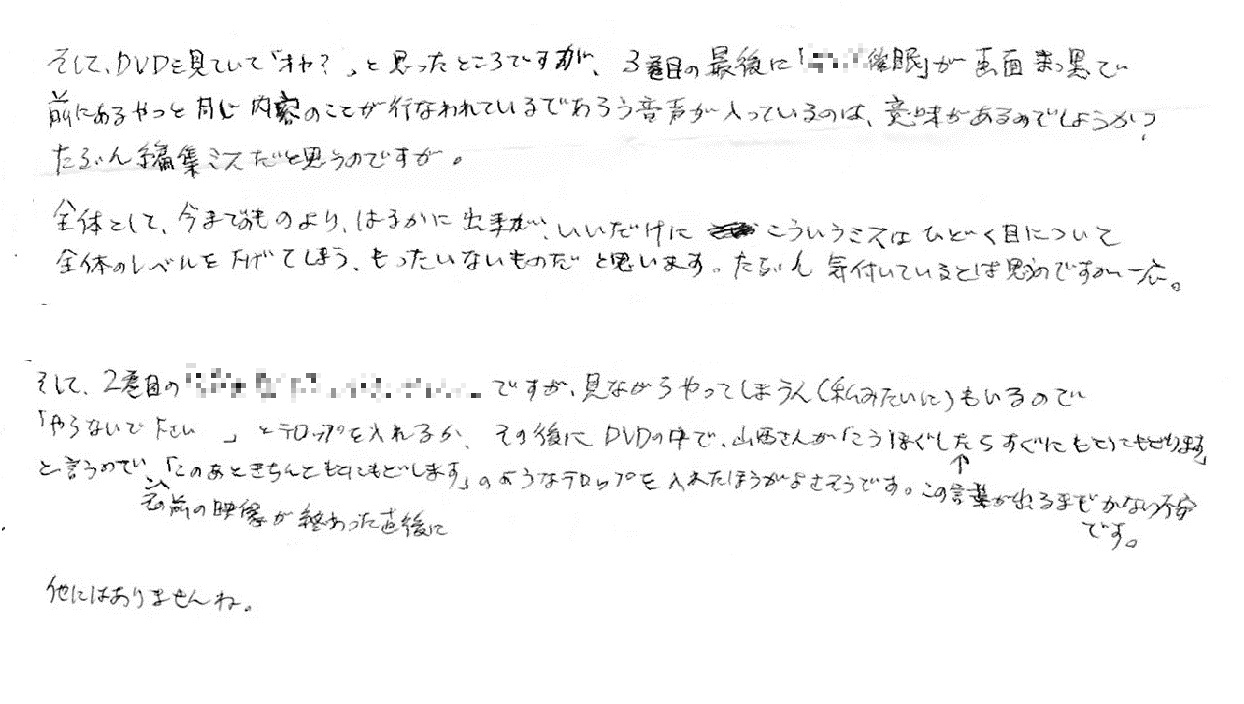 そして、DVDを見ていて「オヤ?」と思ったところですが、3番目の最後に「催眠」が画面真っ黒で
前にあるやつと同じ内容のことが行なわれているであろう音声が入っているのは、意味があるのでしょうか?
たぶん編集ミスだと思うのですが。
全体として、今までのものより、はるかに出来が、いいだけに こういうミスはひどく目について
全体のレベルを下げてしまう、もったいないものだと思います。たぶん気付いているとは思うのですが一応。
そして、2番目の ですが、見ながらやってしまう人(私みたいに)もいるので
「やらないで下さい」とテロップを入れるか、その後にDVDの中で、山西さんが「こうほぐしたらすぐにもとにもどります」
と言うので、「このあときちんともとにもどします」のようなテロップを入れたほうがよさそうです。この言葉が出るまでかなり不安
です。
前の映像が終わった直後に
他にはありませんね。